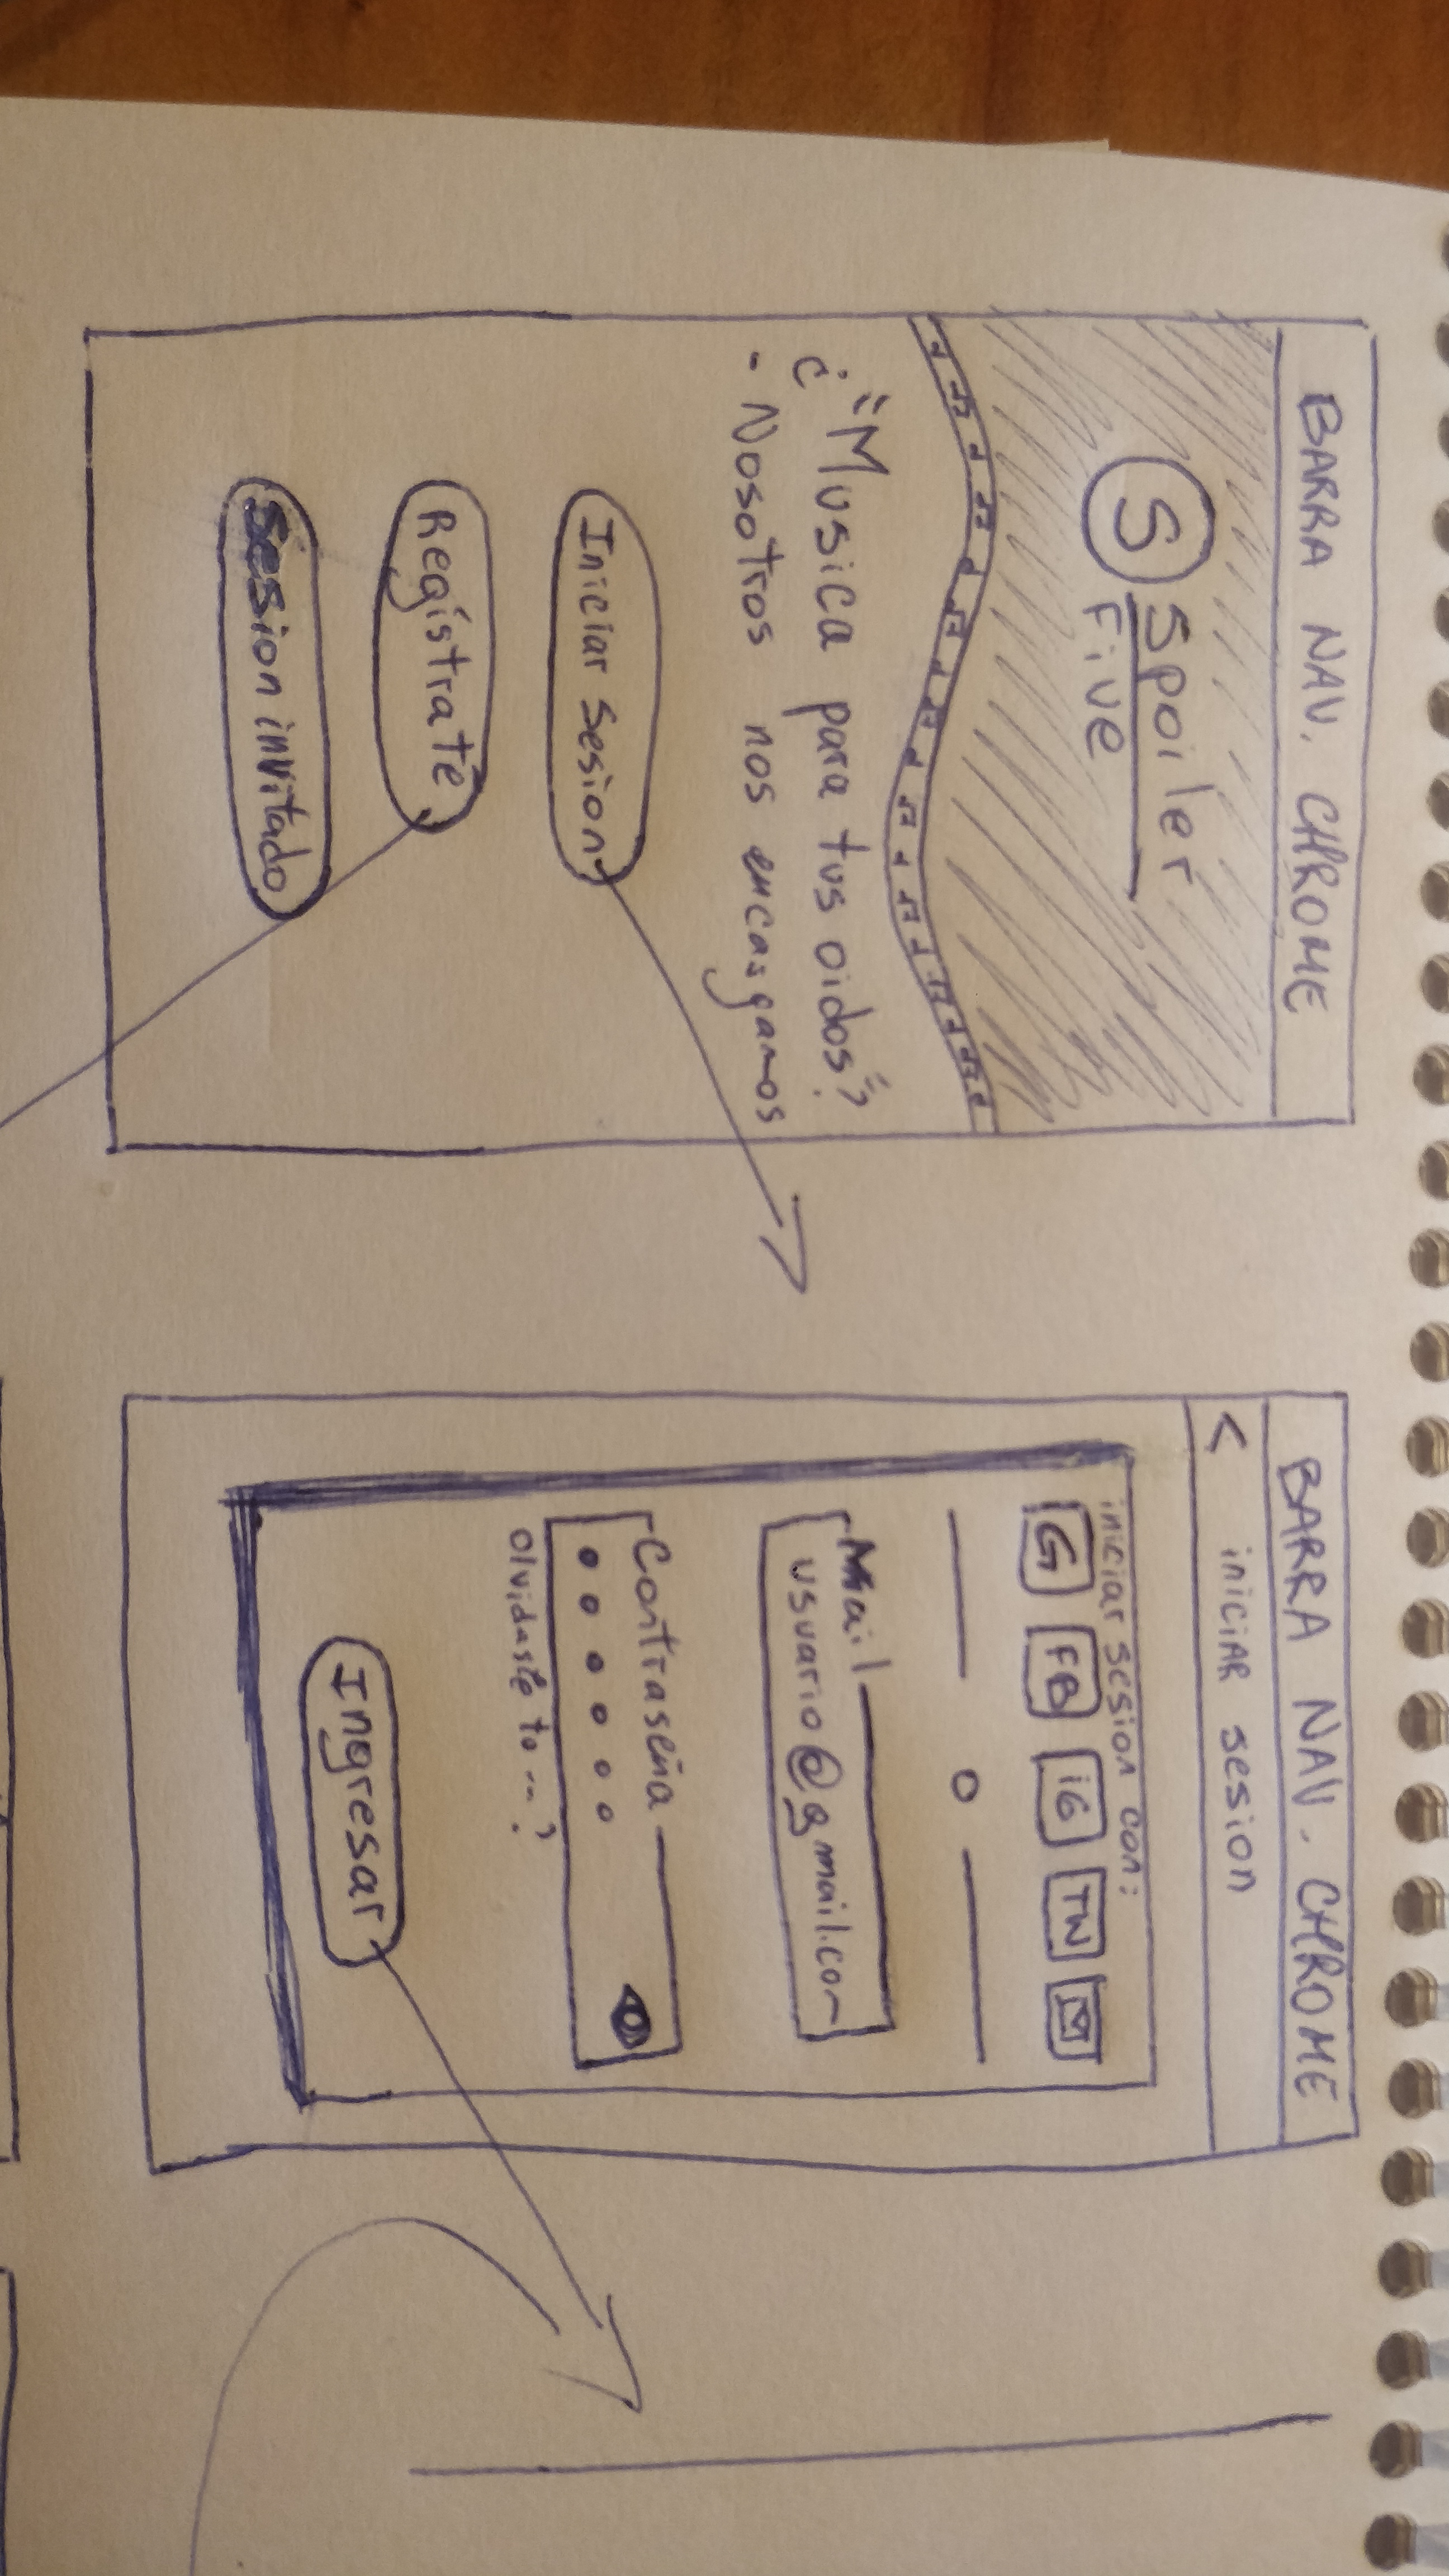 BARRA NAV. CHROME
S
Spoiler
Five
¿"Musica para tus oidos"?
- Nosotros nos encargamos
Iniciar Sesion
Regístrate
Sesion invitado
BARRA NAV. CHROME
< iniciAR sesion
iniciar sesion con:
G FB iG TW
O
Mail
usuario@gmail.com
Contraseña
Olvidaste tu --?
Ingresar